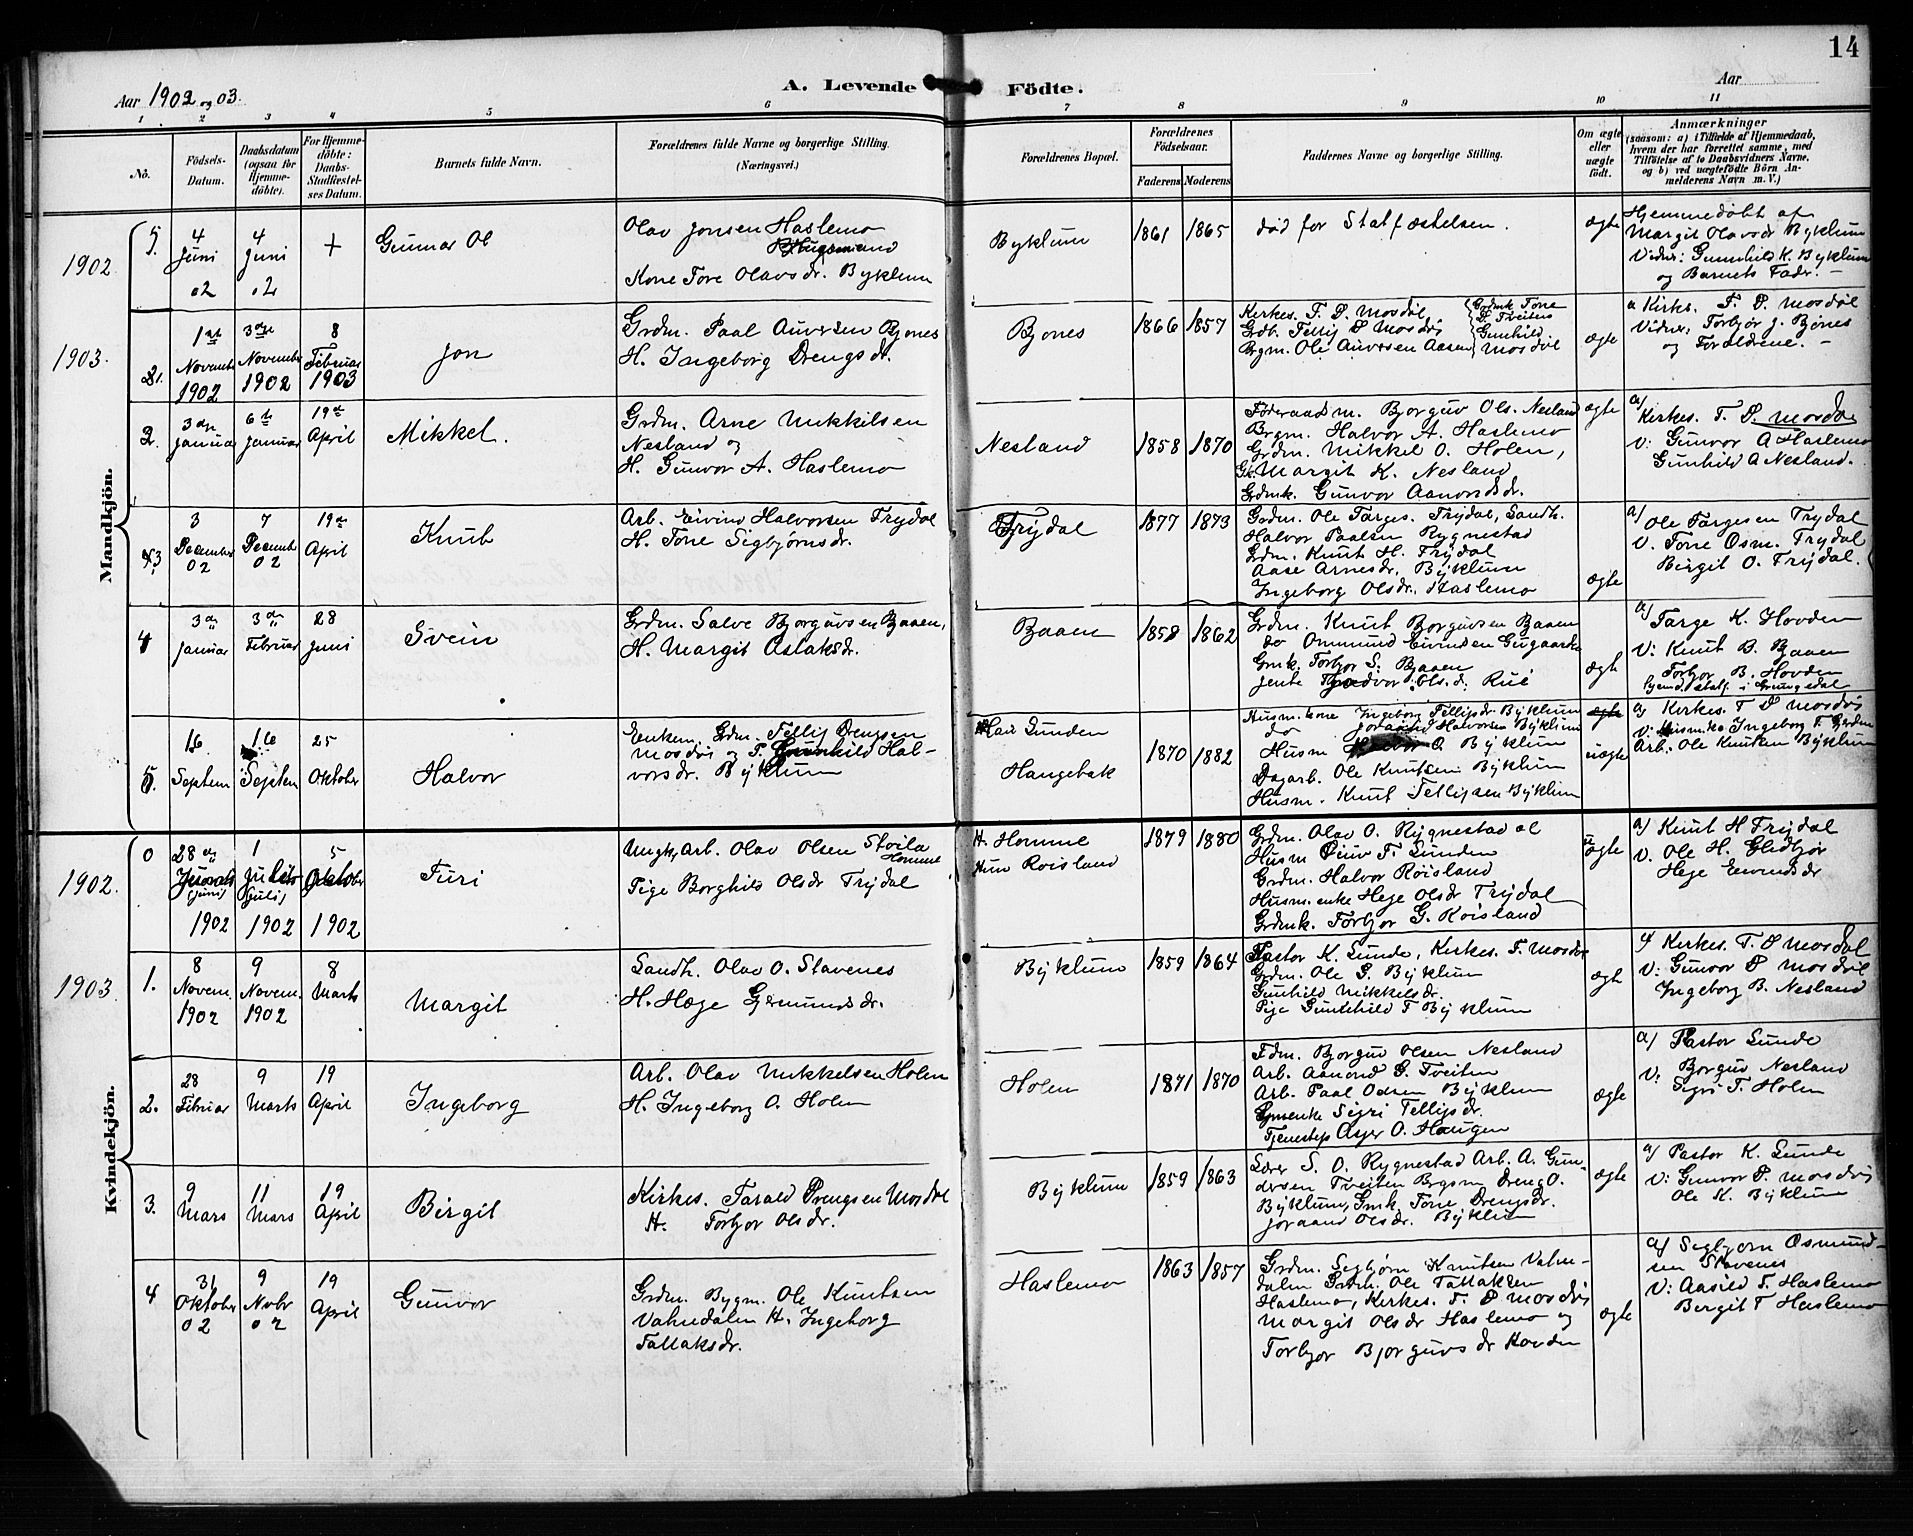 14
Aar 1902 og 03.
A. Levende Födte.
Aar
1. 2 3 4 5 6 7 8 9 10 11
No.
Födsels-
Datum.
Daabsdatum
(ogsaa for
Hjemme-
döbte).
For Hjemme-
döbte:
Daabs-
Stadfæstel-
ses Datum.
Barnets fulde Navn.
Forældrenes fulde Navne og borgerlige Stilling.
(Næringsvei.)
Forældrenes Bopæl.
Forældrenes
Födselsaar.
Faderens Moderens
Faddernes Navne og borgerlige Stilling.
Om ægte
eller
uægte
födt.
Anmærkninger
(saasom: a) i Tilfælde af Hjemmedaab,
hvem der har forrettet samme, med
Tilföielse af to Daabsvidners Navne,
og b) ved uægtefödte Börn An-
melderens Navn m. V.)
Mandkjön.
1902
5.
4
Juni
02
4
Juni
02
+
Gunnar Ol
Olav Jonsen Haslemo
Kone Tore Olavsdr. Byklum
Byklum
1861 1865
död for Statfæstelsen.
ægte
Hjemmedöbt af
Margit Olavsdr Byklum
Vidner: Gunnhild K. Byklum
og Barnets Fader.
1903.
1.
1ste
November
1902
3die
November
1902
8
Februar
1903
Jon
Grdm. Paal Auversen Bjones
H. Ingeborg Drengsdr.
Bjones
1866 1857
Kirkes. T. D. Mosdöl
Gdb. Tellij D Mosdöl
Brgm. Ole Auversen Aasen
Grdmk Tone
D Tveiten
Gunhild
Mosdöl
ægte
a Kirkes. T. D. Mosdöl
Vidner, Torbjör J. Bjones
og Forældrene.
2.
3die
Januar
6te
Januar
19de
April
Mikkel.
Grdm. Arne Mikkilsen
Nesland og
H. Gunvor A. Haslemo
Nesland
1858 1870
Föderaadsm. Bjorguv Ols. Nesland
Brgm. Halvor A. Haslemo
Grdm. Mikkel O. Holen,
Margit K. Nesland
Grdmk. Gunvor Aanondsdr.
ægte
a/
Kirkes. T. D. Mosdöl
V: Gunvor A Haslemo
Gunhild A Nesland.
3
3
December
02
7
December
02
19de
April
Knut
Arb. Eivind Halvorsen Trydal
H. Tone Sigbjørnsdr.
Trydal
1877 1873
Grdm. Ole Targes. Trydal, Landh.
Halvor Paalsen Rygnestad
Grdm. Knut H. Trydal
Aase Arnesdr. Byklum
Ingeborg Olsdr. Haslemo
ægte
a/
Ole Targesen Trydal
V. Tone Osm. Trydal
Birgit O. Trydal.
4
3die
Januar
3die
Februar
28
Juni
Svein
Grdm. Salve Bjorguvsen Baaen,
H. Margit Aslaksdr.
Baaen
1858 1862
Grdm. Knut Borguvsen Baaen
do Ommund Eivinden Gugaarde
Gmk. Torbjor S. Baaen
jente Olsd. Rui
ægte
a/
Targe K. Hovden
V: Knut B. Baaen
Torbjor B. Hovden
5.
16
Septem
16
Septem
25
Oktober
Halvor
Enkem. Grdm. Tellij Drengsen
Mosdöl og P. Gunhild Hal-
vorsdr. Byklum
Han Lunden
Haugebak
1870 1882
Husm. kone Ingeborg Tellijsdr. Byklum
do Joraand Halvorsdr Byklum
Husm O Byklum
Dagarb. Ole Knutsen Byklum
Husm. Knut Tellijsen Byklum
ægte
uægte
a/ Kirkes. T D Mosdöl
V: Husmko Ingeborg T. Lunden
Arb. Ole Knutsen Byklum
Kvindekjön.
1902.
0
28de
Juni
1902
1
Juli
1902
5
Oktober
1902
Turi
Ungk. Arb. Olav Olsen Stoila
Homme
Pige Borghild Olsdr Trydal
H. Homme
Hun Roisland
1879 1880
Grdm. Olav O. Rygnestad al
Husm T. Lunden
Grdm. Halvor Röisland
Husm. enke Hege Olsdr Trydal
Grdmk. Torbjor G. Roisland
uægte
a/ Knut H Trydal
V. Ole H. Glidbjör
Hege Eivindsdr
1903
1.
8
Novem.
1902
9
Novem.
1902
8
Marts
Margit
Landh. Olav O. Stavenes
H. Hæge Gjermundsdr.
Byklum
1859 1864
Pastor K. Lunde, Kirkes. T. Mosdöl
Grdm. Ole G. Byklum
Gunhild Mikkelsdr.
Pige Gunhild T Byklum
ægte
a/ Kirkes. T. D Mosdöl
V: Gunvor D Mosdöl
Ingeborg B. Nesland
2.
28
Februar
9
Marts
19
April
Ingeborg
Arb. Olav Mikkelsen Holen
H. Ingeborg O. Holen
Holen
1871 1870
Fdm. Bjorguv Olsen Nesland
Arb. Aanond G. Tveiten
Arb. Paal Odsen Byklum
Gmenke Sigri Tellijsdr.
Tjenestep Asjer O. Haugen
ægte
a/ Pastor Lunde
V: Borguv Nesland
Sigri T. Holen
3.
9
Mars
11
Mars
19
April
Birgit
Kirkes. Tarald Drengsen Mosdøl
H. Torbjor Olsdr.
Byklum
1859 1863
Lærer S. O. Rygnestad Arb. A. Gun-
dersen Tveiten Brgsm Dreng O.
Byklum, Gmk. Tone Drengsdr.
Joraand Olsdr. Byklum
ægte
a/ Pastor K. Lunde
V: Gunvor D. Mosdöl
Ole K. Byklum
4
31
Oktober
02
9
Nobr
02
19
April
Gunvor
Grdm. Bygm. Ole Knutsen
Vatnedalen H. Ingeborg
Tallaksdr.
Haslemo
1863 1857
Grdm. Segbjørn Knutsen Vatne-
dalen Grdm. Ole Tallaksen
Haslemo, Kirkes. T. D Mosdöl
Margit Olsdr Haslemo og
Torbjor Bjorguvsdr Hovden
ægte
a/ Segbjorn Osmund-
sen Stavenes
V: Aasild T. Haslemo
Bergit T Haslemo